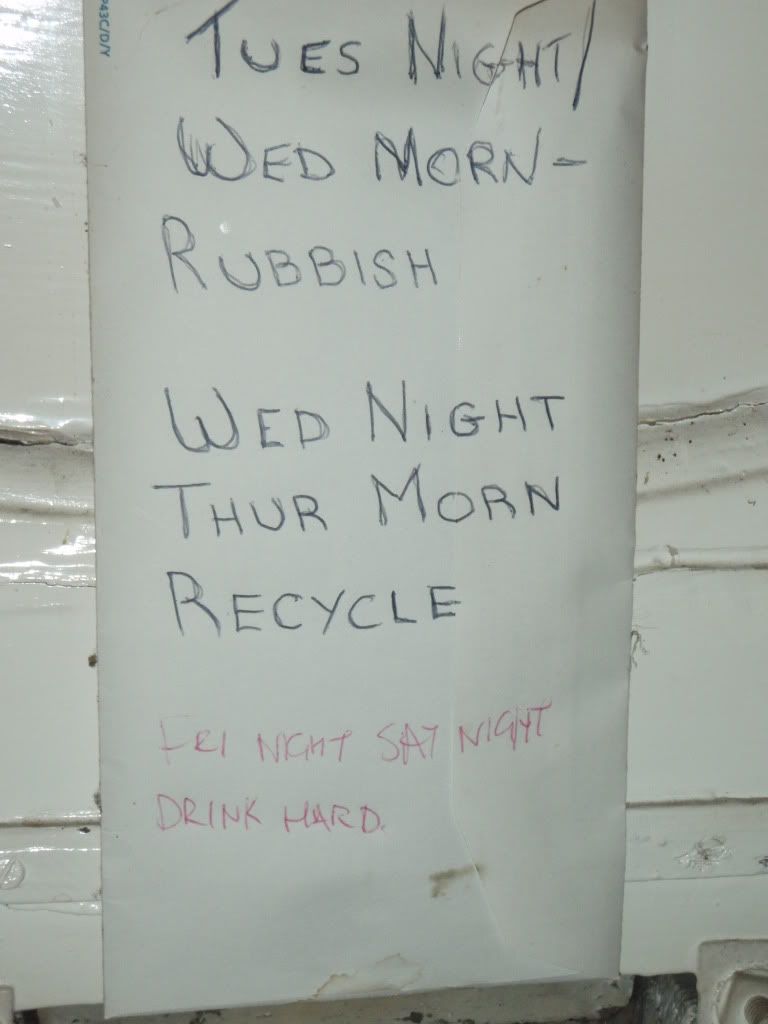 P43C/D/Y
TUES NIGHT/
WED MORN-
RUBBISH
WED NIGHT
THUR MORN
RECYCLE
FRI NIGHT SAT NIGHT
DRINK HARD.